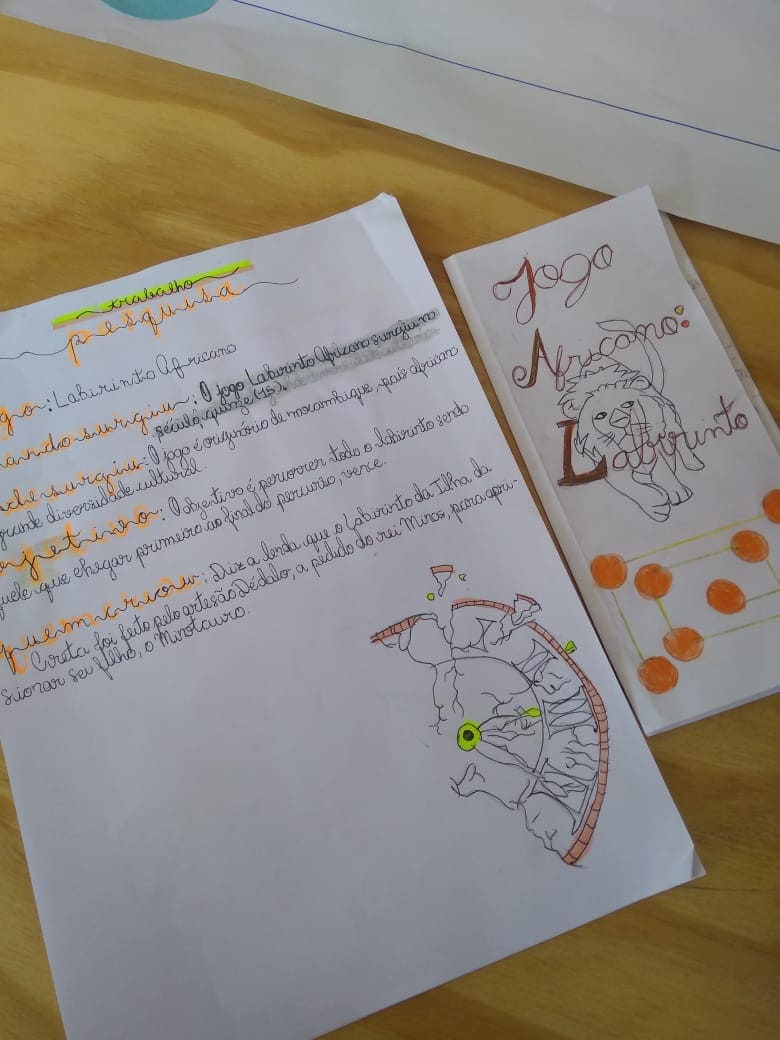 trabalho
pesquisa
go: Labirinto Africano
ando surgiu: O jogo Labirinto Africano surgiu no
século quinze (15).
de surgiu: O jogo é originário de mocambique, país african
grande diversidade cultural.
jetivo: O objetivo é percorrer todo o labirinto sendo
quele que chegar primeiro ao final do percurso, vence.
quem criou: Diz a lenda que o Labirinto da Ilha da
Creta foi feito pelo artesão Dédalo, a pedido do rei Minos, para apri-
sionar seu filho, o Minotauro.
Jogo
Africano:
Labirinto